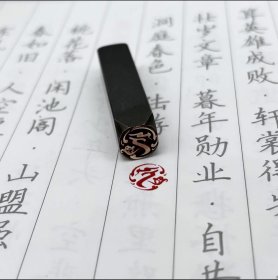 算英雄成败·轩裳得
壮岁文章·暮年勋业·自
洞庭春色·
桃花落·闲池阁·山盟虽
春如旧·人空